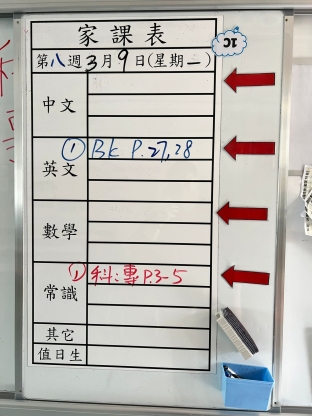 家課表
1C
第八週3月9日(星期一)
中文
英文 ① Bk P.27,28
數學
常識 ① 科:專P.3-5
其它
值日生